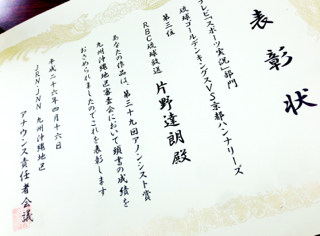 表彰状
テレビ「スポーツ実況」部門
琉球ゴールデンキングスVS京都ハンナリーズ
第三位
RBC琉球放送 片野達朗殿
あなたの作品は、第三十九回アノンシスト賞
九州沖縄地区審査会において頭書の成績を
おさめられましたのでこれを表彰します
平成二十六年四月十六日
JRN・JNN 九州沖縄地区
アナウンス責任者会議